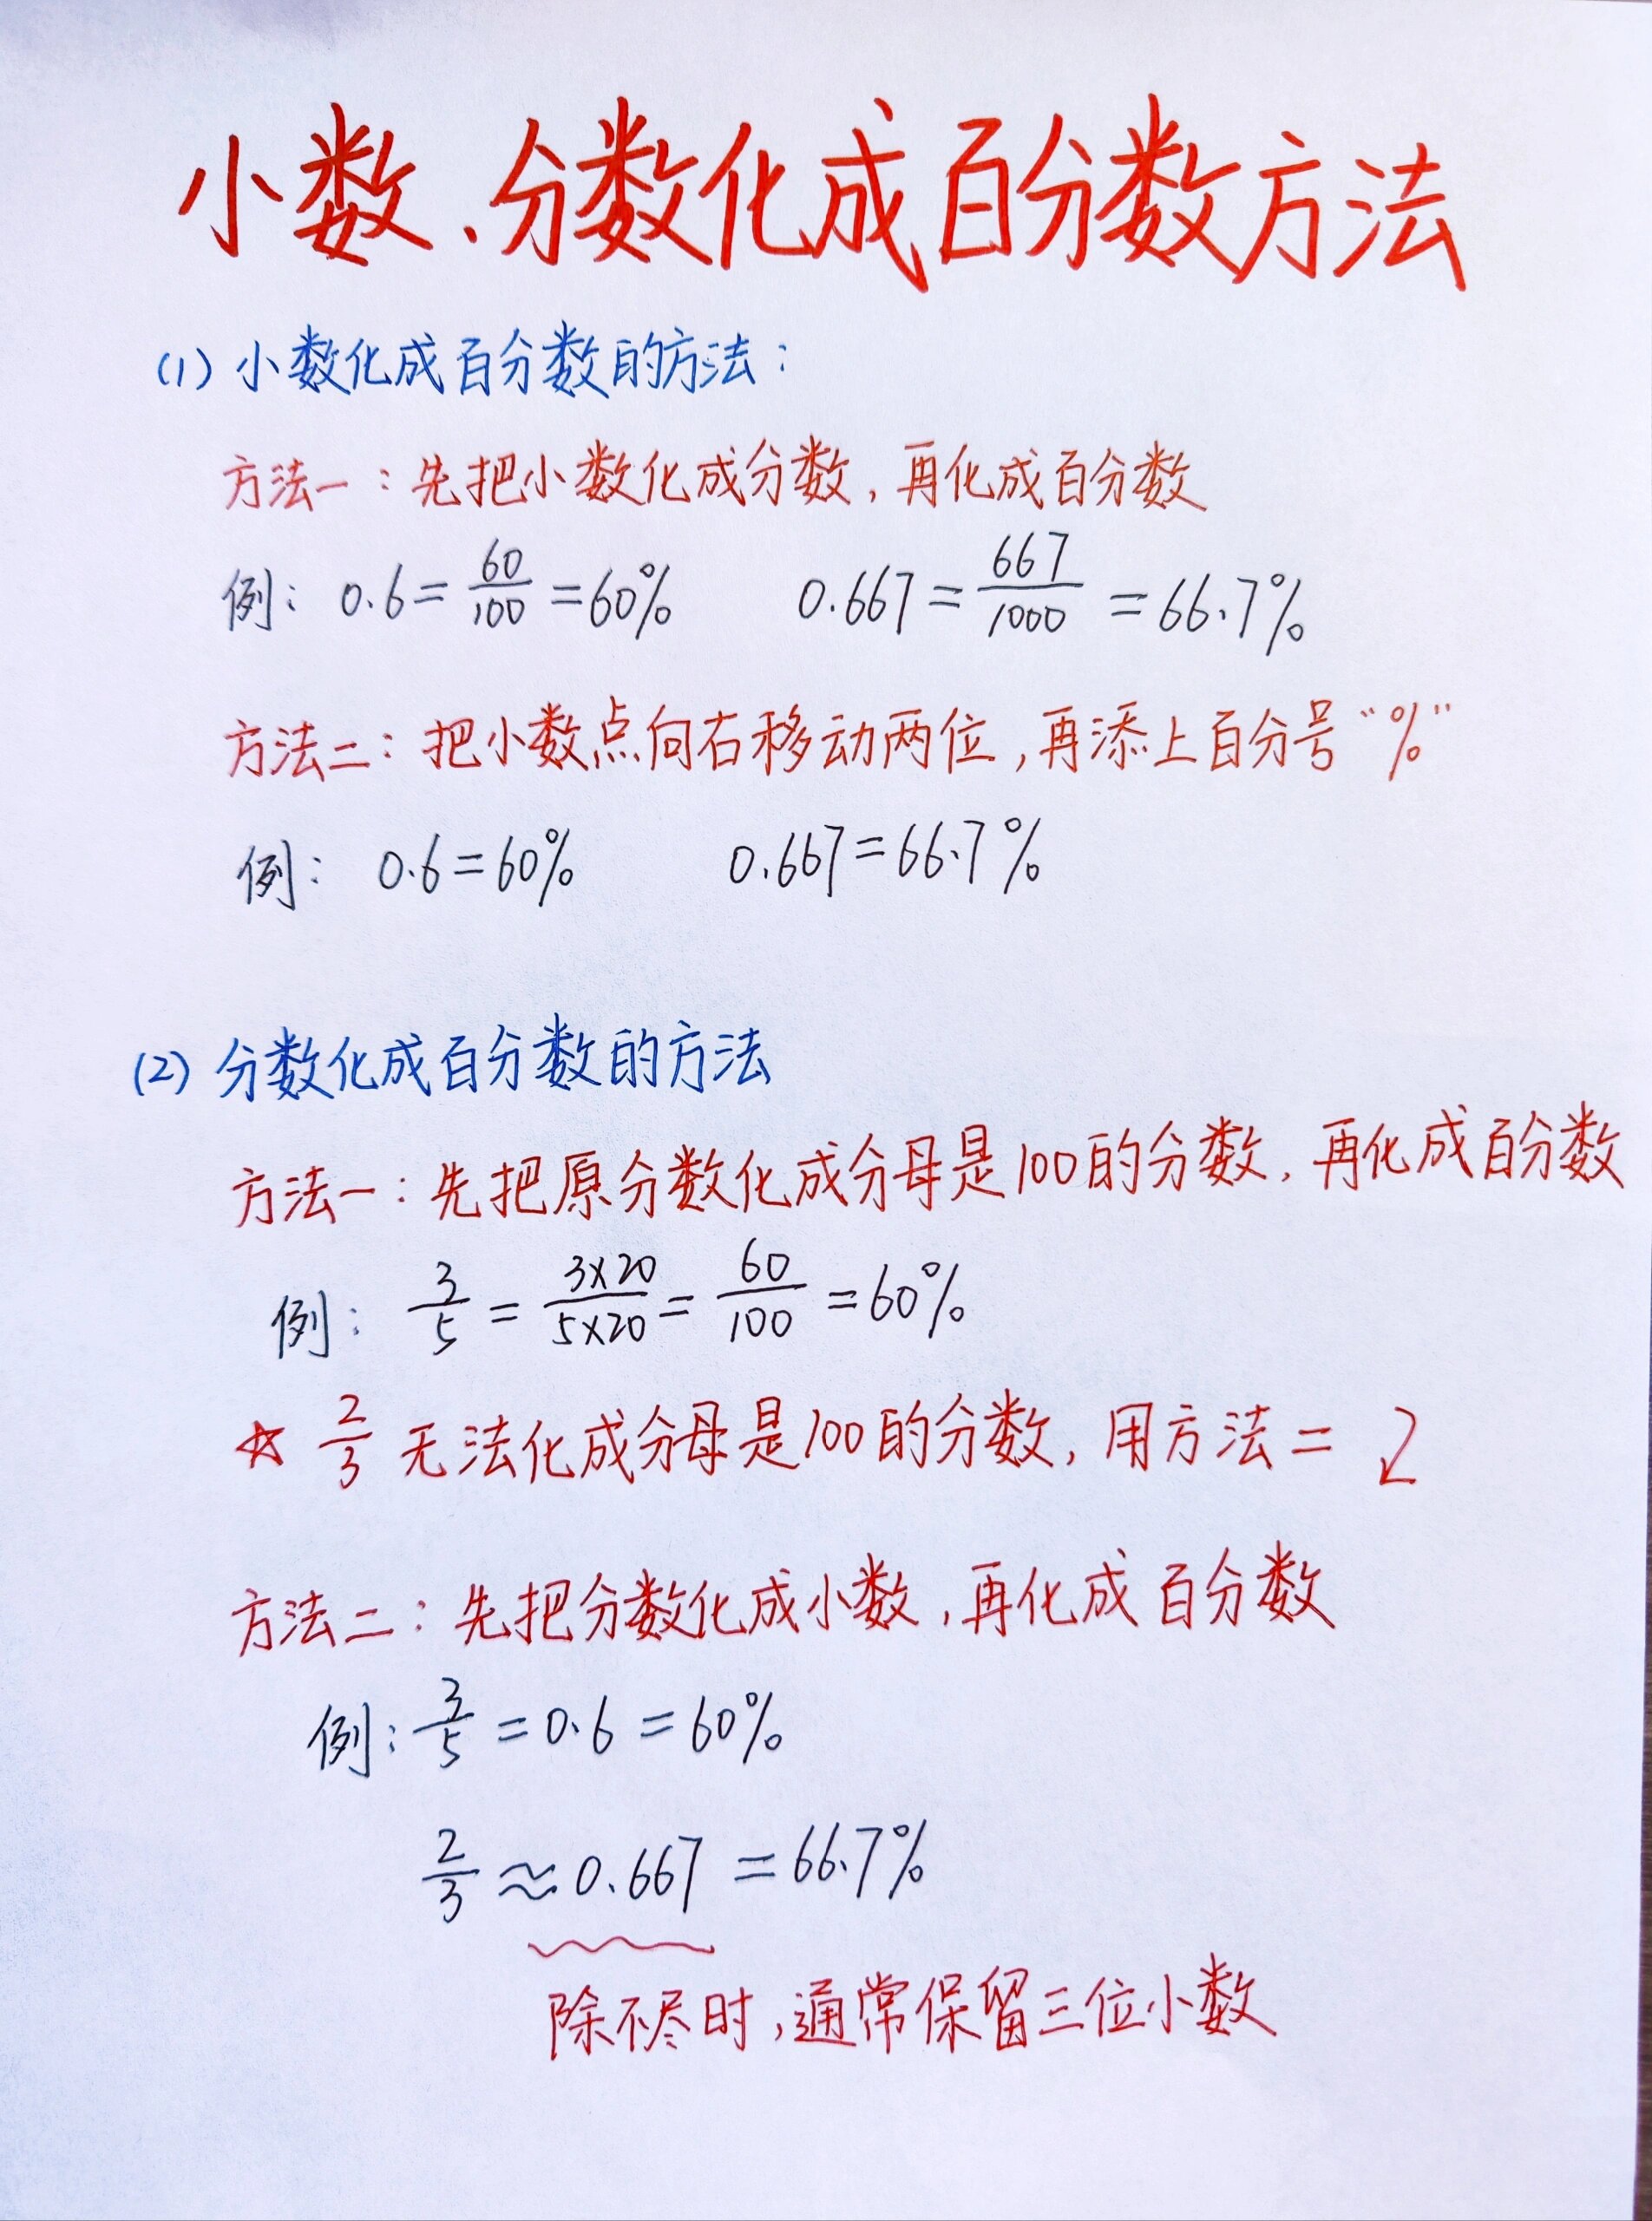 小数、分数化成百分数方法
(1) 小数化成百分数的方法:
方法一:先把小数化成分数,再化成百分数
例: 0.6=60/100=60%  0.667=667/1000=66.7%
方法二:把小数点向右移动两位,再添上百分号“%”
例: 0.6=60%  0.667=66.7%
(2) 分数化成百分数的方法
方法一:先把原分数化成分母是100的分数,再化成百分数
例: 3/5=3×20/5×20=60/100=60%
☆ 2/3 无法化成分母是100的分数,用方法二 ↙
方法二:先把分数化成小数,再化成百分数
例: 3/5=0.6=60%
2/3≈0.667=66.7%
除不尽时,通常保留三位小数